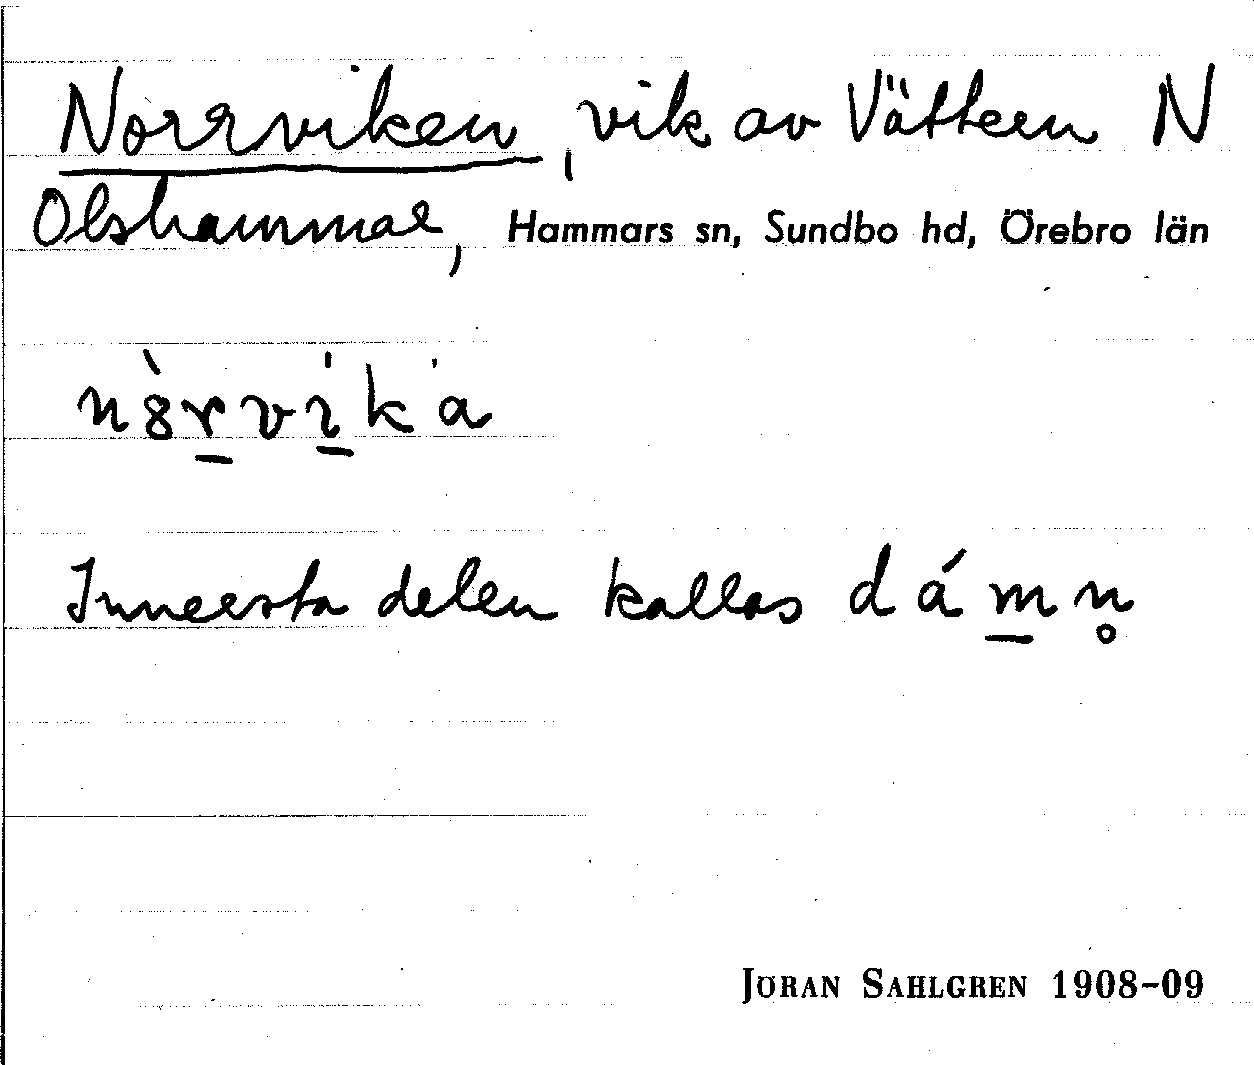 Norrviken, vik av Vättern N
Olshammar, Hammars sn, Sundbo hd, Örebro län
nȣ̀r̲vi̲̍k'a
Innersta delen kallas dám̲n̥
JÖRAN SAHLGREN 1908-09